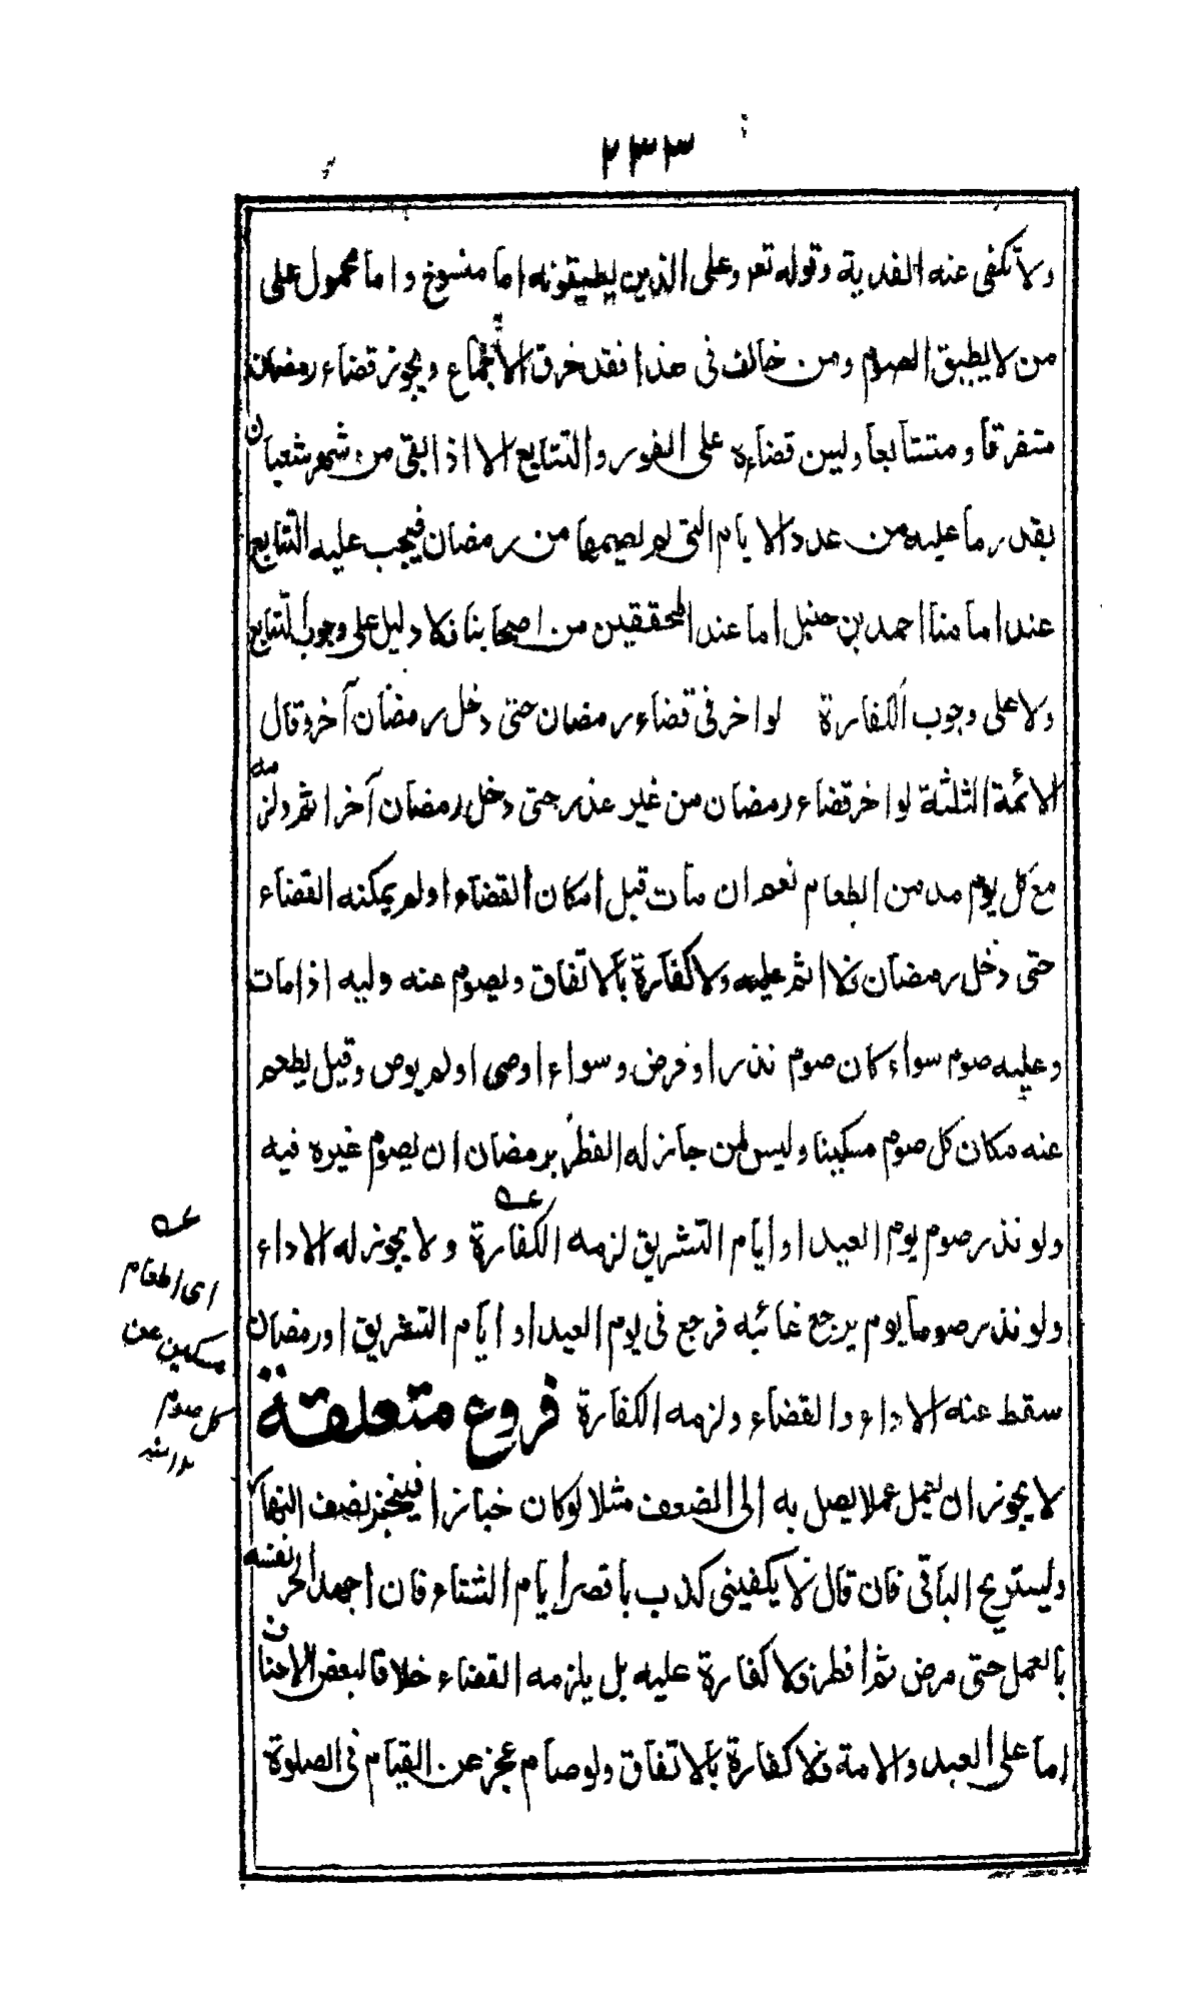 ٢٣٣
ولا تكفى عنه الفدية وقوله تعر وعلى الذين يطيقونه اما منسوخ واما محمول على
من لا يطيق الصيام ومن خالف فى هذا فقد خرق الاجماع ويجوز قضاء رمضان
متفرقا ومتتابعا وليس قضاءه على الفور والتتابع الا اذا بقى من شهر شعبان
بقدر ما عليه من عدد الايام التى لم يصمها من رمضان فيجب عليه التتابع
عند امامنا احمد بن حنبل اما عند المحققين من اصحابنا فلا دليل على وجوب التتابع
ولا على وجوب الكفارة لو اخر فى قضاء رمضان حتى دخل رمضان آخر وقال
الائمة الثلثة لو اخر قضاء رمضان من غير عذر حتى دخل رمضان آخر اثم ولزمه
مع كل يوم مد من الطعام نعم ان مات قبل امكان القضاء او لم يمكنه القضاء
حتى دخل رمضان فلا اثم عليه ولا كفارة بالاتفاق ويصوم عنه وليه اذا مات
وعليه صوم سواء كان صوم نذر او فرض وسواء اوصى او لم يوص وقيل يطعم
عنه مكان كل صوم مسكينا وليس لمن جاز له الفطر برمضان ان يصوم غيره فيه
ولو نذر صوم يوم العيد او ايام التشريق لزمه الكفارة عه ولا يجوز له الاداء
ولو نذر صوما يوم يرجع غائبه فرجع فى يوم العيد او ايام التشريق او رمضان
سقط عنه الاداء والقضاء ولزمه الكفارة فروع متعلقة
لا يجوز ان يعمل عملا يصل به الى الضعف مثلا لو كان خبازا فيخبز نصف النهار
وليستريح الباقى فان قال لا يكفينى كذب باقصر ايام الشتاء فان اجهد الحر نفسه
بالعمل حتى مرض ثم افطر فلا كفارة عليه بل يلزمه القضاء خلافا لبعض الاحناف
اما على العبد والامة فلا كفارة بالاتفاق ولو صام عجز عن القيام فى الصلوة
عه
اى اطعام
مسكين عن
كل صوم